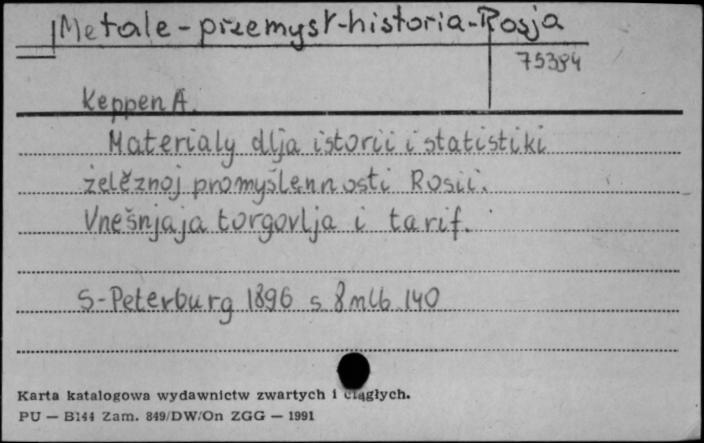 Metale - przemysł - historia - Rosja
75384
Keppen A.
Materialy dlja istorii i statistiki
želěznoj promyšlennosti Rosii.
Vnešnjaja torgovlja i tarif.
S-Peterburg 1896 s. 8 nlb. 140
Karta katalogowa wydawnictw zwartych i ciągłych.
PU — B144 Zam. 849/DW/On ZGG — 1991